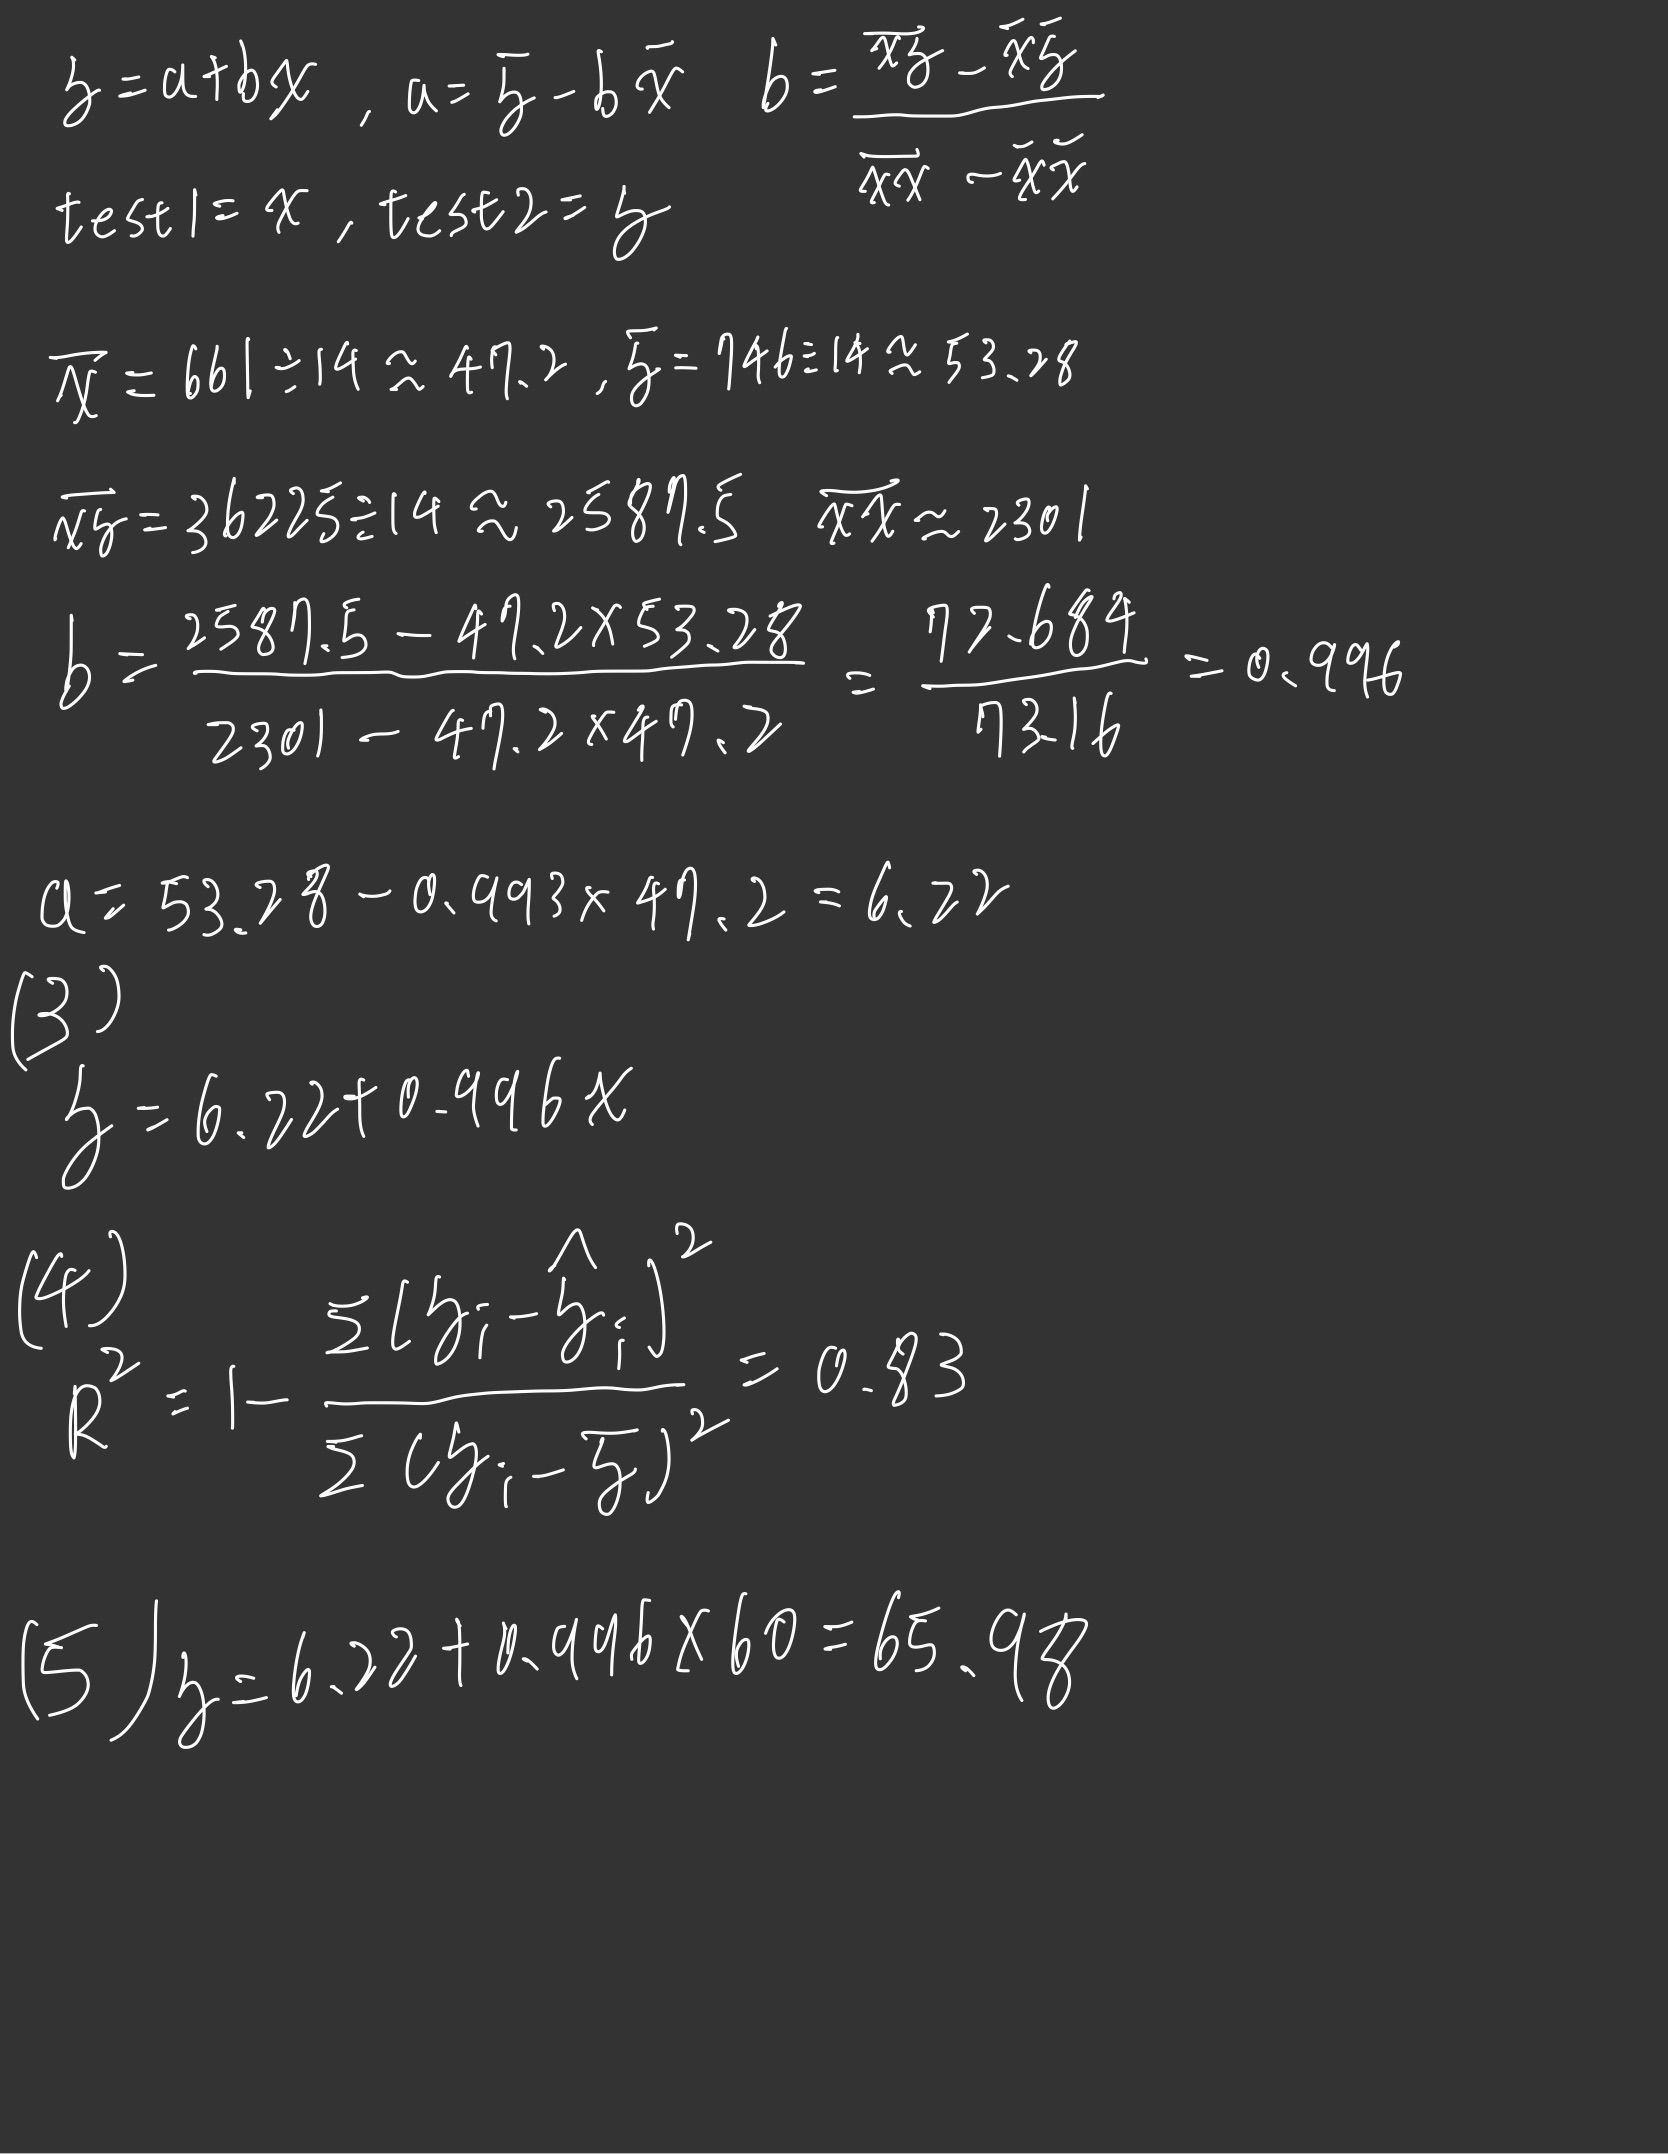 y = a+bx , a = ȳ - b x̄ b = (x̄ȳ - x̄ ȳ) / (x̄x̄ - x̄ x̄)
test1 = x , test2 = y
x̄ = 661 ÷ 14 ≈ 47.2 , ȳ = 746 ÷ 14 ≈ 53.28
x̄ȳ = 36225 ÷ 14 ≈ 2587.5 x̄x̄ ≈ 2301
b = (2587.5 - 47.2 × 53.28) / (2301 - 47.2 × 47.2) = 72.684 / 73.16 = 0.996
a = 53.28 - 0.993 × 47.2 = 6.22
(3)
y = 6.22 + 0.996 x
(4)
R² = 1 - Σ(yᵢ - ŷᵢ)² / Σ(yᵢ - ȳ)² = 0.83
(5) y = 6.22 + 0.996 × 60 = 65.98